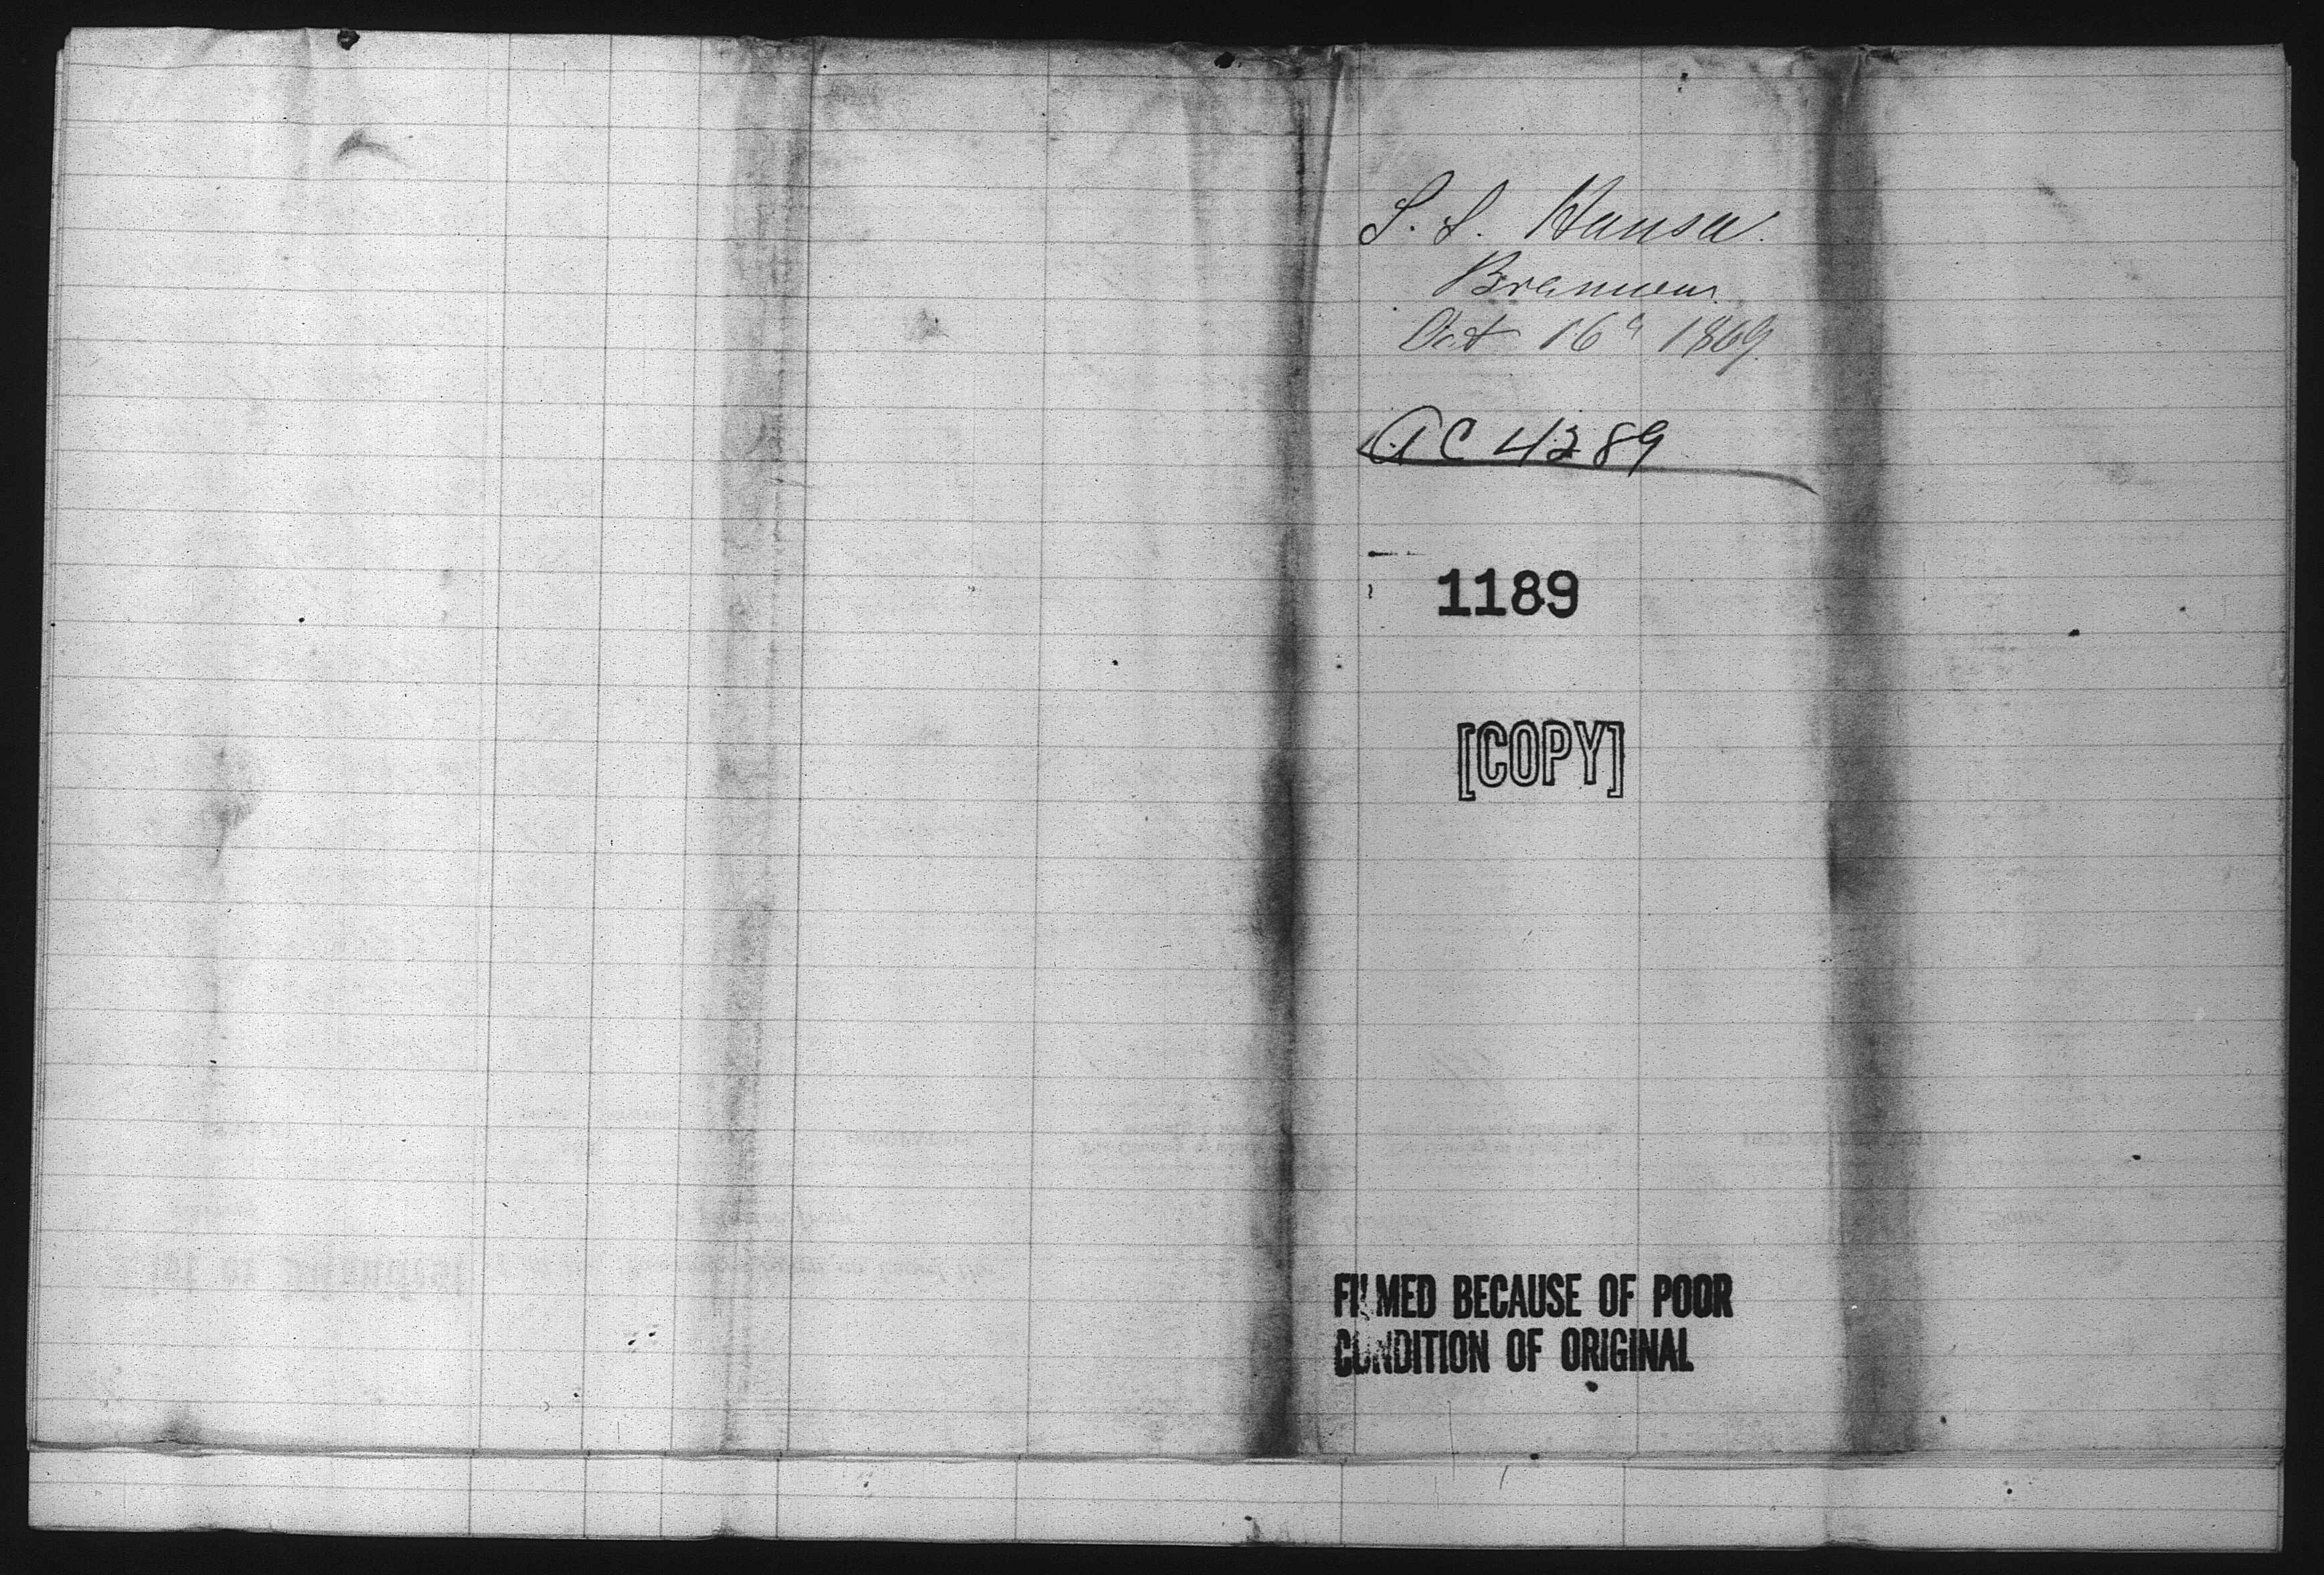 S. S. Hansa
Bremen
Oct 16" 1869
AC 4289
1189
[COPY]
FILMED BECAUSE OF POOR
CONDITION OF ORIGINAL